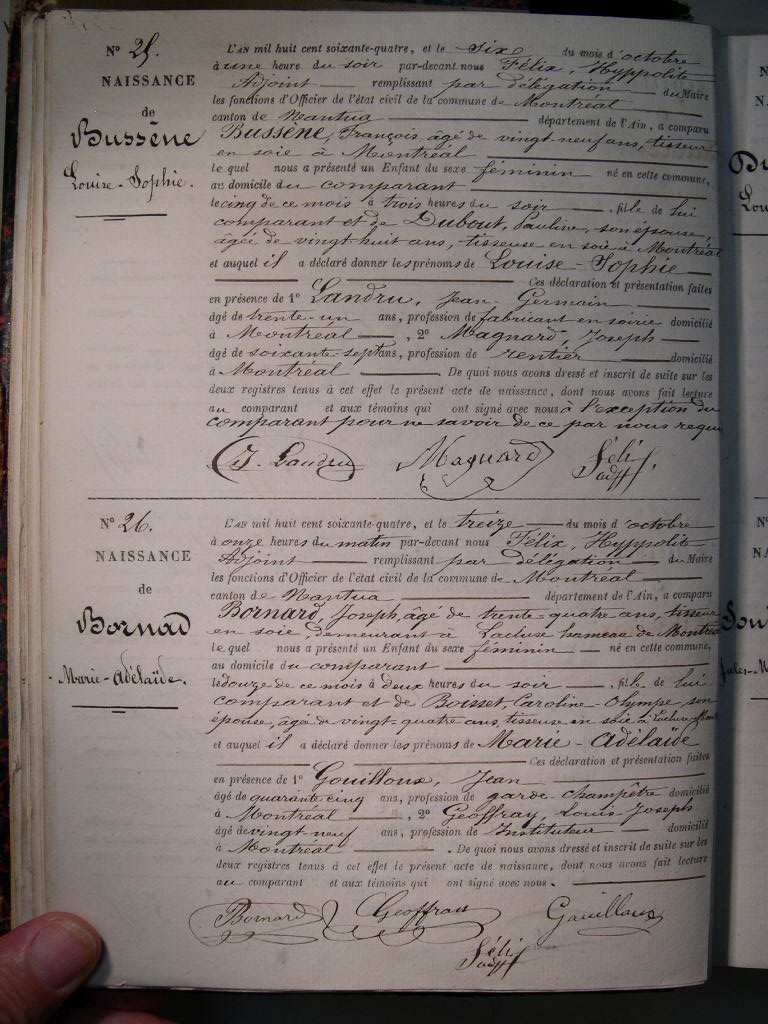 N° 25.
NAISSANCE
de
Bussène
Louise-Sophie.
L'AN mil huit cent soixante-quatre, et le six du mois d'octobre
à une heure du soir par-devant nous Félix, Hyppolite
Adjoint remplissant par délégation du Maire
les fonctions d'Officier de l'état civil de la commune de Montréal
canton de Nantua département de l'Ain, a comparu
BUSSÈNE, François âgé de vingt neuf ans, tisseur
en soie à Montréal
le quel nous a présenté un Enfant du sexe féminin né en cette commune,
au domicile du comparant
le cinq de ce mois à trois heures du soir . fille de lui
comparant et de Dubout, Pauline, son épouse,
âgée de vingt huit ans, tisseuse en soie à Montréal
et auquel il a déclaré donner les prénoms de Louise-Sophie
Ces déclaration et présentation faites
en présence de 1° Landru, Jean-Germain
âgé de trente-un ans, profession de fabricant en soirie domicilié
à Montréal , 2° Magnard, Joseph
âgé de soixante-sept ans, profession de rentier domicilié
à Montréal . De quoi nous avons dressé et inscrit de suite sur les
deux registres tenus à cet effet le présent acte de naissance, dont nous avons fait lecture
au comparant et aux témoins qui ont signé avec nous à l'exception du
comparant pour ne savoir de ce par nous requis
J. Landru Magnard Féli
adjt
N° 26.
NAISSANCE
de
Bornad
Marie-Adélaïde.
L'AN mil huit cent soixante-quatre, et le treize du mois d'octobre
à onze heures du matin par-devant nous Félix, Hyppolite
Adjoint remplissant par délégation du Maire
les fonctions d'Officier de l'état civil de la commune de Montréal
canton de Nantua département de l'Ain, a comparu
BORNARD, Joseph, âgé de trente-quatre ans, tisseur
en soie, demeurant à Lacluse hameau de Montréal
le quel nous a présenté un Enfant du sexe féminin né en cette commune,
au domicile du comparant
le douze de ce mois à deux heures du soir . fille de lui
comparant et de Boisset, Caroline-Olympe son
épouse, âgée de vingt-quatre ans, tisseuse en soie à Lacluse
et auquel il a déclaré donner les prénoms de Marie-Adélaïde
Ces déclaration et présentation faites
en présence de 1° Gouilloux, Jean
âgé de quarante cinq ans, profession de garde-champêtre domicilié
à Montréal , 2° Geoffray, Louis-Joseph
âgé de vingt neuf ans, profession de Instituteur domicilié
à Montréal . De quoi nous avons dressé et inscrit de suite sur les
deux registres tenus à cet effet le présent acte de naissance, dont nous avons fait lecture
au comparant et aux témoins qui ont signé avec nous.
Bornard Geoffray Gouilloux
Féli
adjt